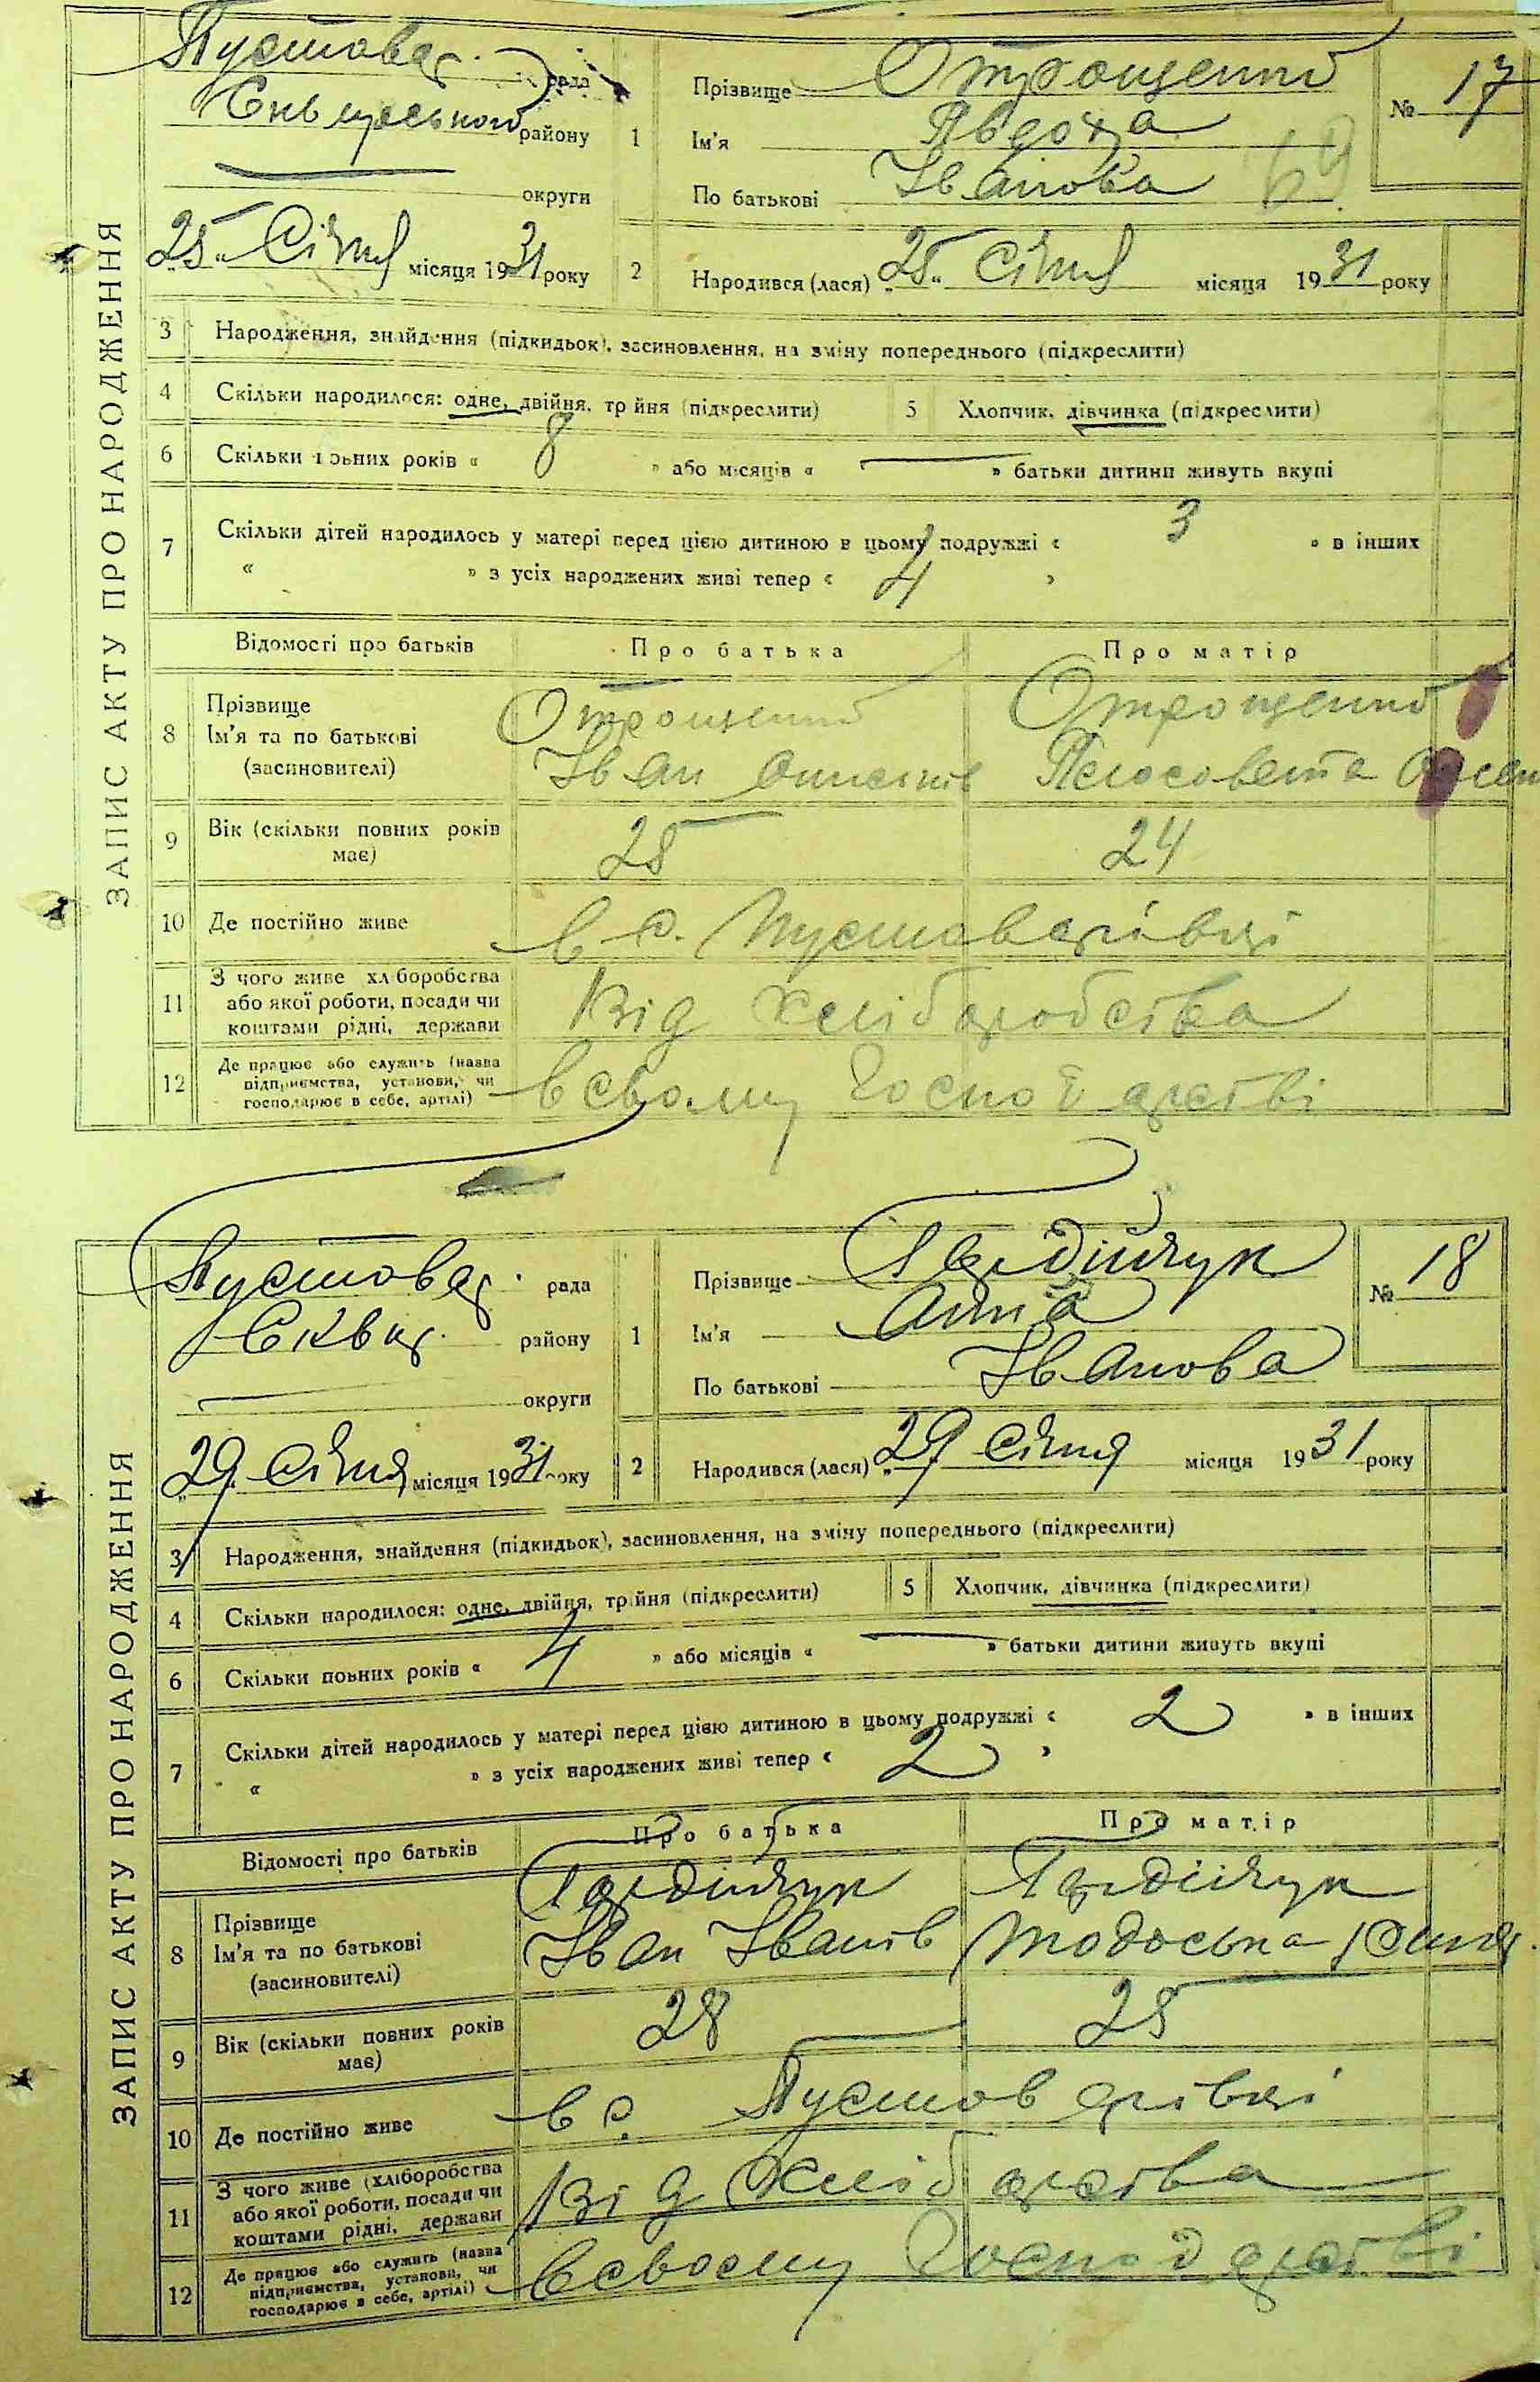 ЗАПИС АКТУ ПРО НАРОДЖЕННЯ
Пустовар. рада
району
округи
25 Січня місяця 1931 року
1 Прізвище Отрощенко
Ім'я Явдоха
По батькові Іванова
№ 17
69
2 Народився (лася) „25“ Січня місяця 1931 року
3 Народження, знайдення (підкидьок), засиновлення, на зміну попереднього (підкреслити)
4 Скільки народилося: одне, двійня, трійня (підкреслити) 5 Хлопчик, дівчинка (підкреслити)
6 Скільки повних років « 8 » або місяців « — » батьки дитини живуть вкупі
7 Скільки дітей народилось у матері перед цією дитиною в цьому подружжі « 3 » в інших
« » з усіх народжених живі тепер « 4 »
Відомості про батьків Про батька Про матір
8 Прізвище Отрощенко Отрощенко
Ім'я та по батькові Іван
(засиновителі)
9 Вік (скільки повних років має) 25 24
10 Де постійно живе в с. Пустоварівці
11 З чого живе хліборобства
або якої роботи, посади чи
коштами рідні, держави Від Хліборобства
12 Де працює або служить (назва
підприємства, установи, чи
господарює в себе, артілі) в свому
ЗАПИС АКТУ ПРО НАРОДЖЕННЯ
Пустовар. рада
Сквир. району
округи
29 січня місяця 1931 року
1 Прізвище Гардійчук
Ім'я Анна
По батькові Іванова
№ 18
2 Народився (лася) „29 січня місяця 1931 року
3 Народження, знайдення (підкидьок), засиновлення, на зміну попереднього (підкреслити)
4 Скільки народилося: одне, двійня, трійня (підкреслити) 5 Хлопчик, дівчинка (підкреслити)
6 Скільки повних років « 4 » або місяців « — » батьки дитини живуть вкупі
7 Скільки дітей народилось у матері перед цією дитиною в цьому подружжі « 2 » в інших
« » з усіх народжених живі тепер « 2 »
Відомості про батьків Про батька Про матір
8 Прізвище Гардійчук Гардійчук
Ім'я та по батькові Іван Іванів Тодоська
(засиновителі)
9 Вік (скільки повних років має) 28 25
10 Де постійно живе в с. Пустоварівці
11 З чого живе (хліборобства
або якої роботи, посади чи
коштами рідні, держави Від
12 Де працює або служить (назва
підприємства, установи, чи
господарює в себе, артілі) в своєму Господарстві